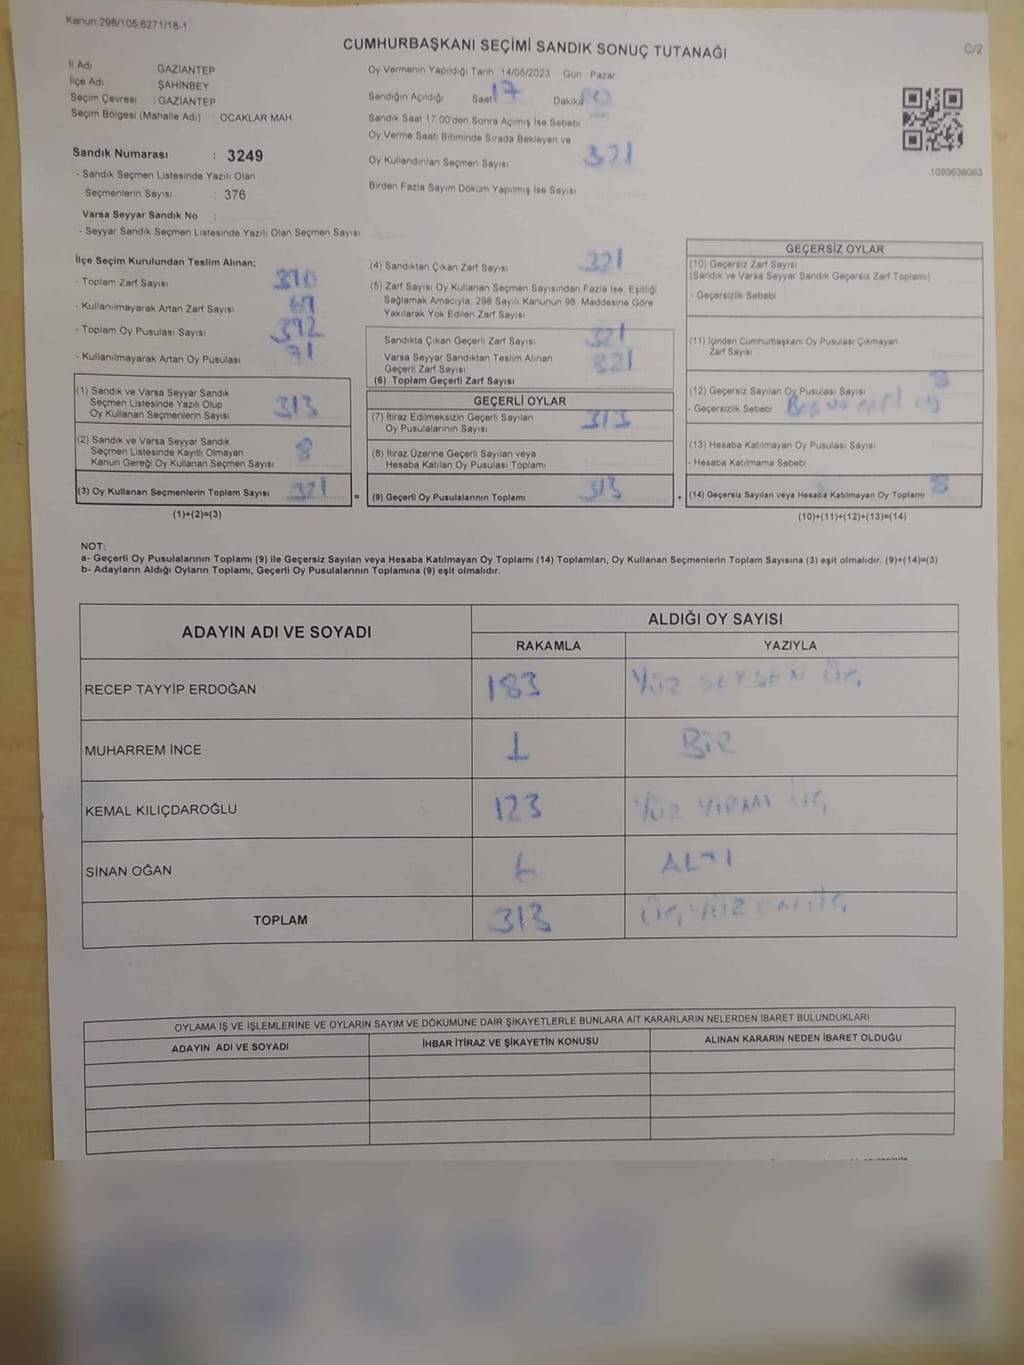 Kanun 298/105,6271/18-1
CUMHURBAŞKANI SEÇİMİ SANDIK SONUÇ TUTANAĞI
C/2
İl Adı GAZİANTEP
İlçe Adı ŞAHİNBEY
Seçim Çevresi : GAZİANTEP
Seçim Bölgesi (Mahalle Adı) : OCAKLAR MAH.
Sandık Numarası : 3249
- Sandık Seçmen Listesinde Yazılı Olan
Seçmenlerin Sayısı : 376
Varsa Seyyar Sandık No :
- Seyyar Sandık Seçmen Listesinde Yazılı Olan Seçmen Sayısı
Oy Vermenin Yapıldığı Tarih 14/05/2023 Gün Pazar
Sandığın Açıldığı Saat 17 Dakika
Sandık Saat 17:00'den Sonra Açılmış İse Sebebi
Oy Verme Saati Bitiminde Sırada Bekleyen ve
Oy Kullandırılan Seçmen Sayısı 321
Birden Fazla Sayım Döküm Yapılmış İse Sayısı
1093638063
İlçe Seçim Kurulundan Teslim Alınan;
- Toplam Zarf Sayısı
- Kullanılmayarak Artan Zarf Sayısı
- Toplam Oy Pusulası Sayısı 392
- Kullanılmayarak Artan Oy Pusulası 71
(1) Sandık ve Varsa Seyyar Sandık
Seçmen Listesinde Yazılı Olup
Oy Kullanan Seçmenlerin Sayısı 313
(2) Sandık ve Varsa Seyyar Sandık
Seçmen Listesinde Kayıtlı Olmayan
Kanun Gereği Oy Kullanan Seçmen Sayısı 8
(3) Oy Kullanan Seçmenlerin Toplam Sayısı 321
(1)+(2)=(3)
(4) Sandıktan Çıkan Zarf Sayısı 321
(5) Zarf Sayısı Oy Kullanan Seçmen Sayısından Fazla İse, Eşitliği
Sağlamak Amacıyla, 298 Sayılı Kanunun 98. Maddesine Göre
Yakılarak Yok Edilen Zarf Sayısı
Sandıkta Çıkan Geçerli Zarf Sayısı 321
Varsa Seyyar Sandıktan Teslim Alınan
Geçerli Zarf Sayısı 321
(6) Toplam Geçerli Zarf Sayısı
GEÇERLİ OYLAR
(7) İtiraz Edilmeksizin Geçerli Sayılan
Oy Pusulalarının Sayısı 313
(8) İtiraz Üzerine Geçerli Sayılan veya
Hesaba Katılan Oy Pusulası Toplamı
= (9) Geçerli Oy Pusulalarının Toplamı 313
GEÇERSİZ OYLAR
(10) Geçersiz Zarf Sayısı
(Sandık ve Varsa Seyyar Sandık Geçersiz Zarf Toplamı)
- Geçersizlik Sebebi
(11) İçinden Cumhurbaşkanı Oy Pusulası Çıkmayan
Zarf Sayısı
(12) Geçersiz Sayılan Oy Pusulası Sayısı 8
- Geçersizlik Sebebi
(13) Hesaba Katılmayan Oy Pusulası Sayısı
- Hesaba Katılmama Sebebi
+ (14) Geçersiz Sayılan veya Hesaba Katılmayan Oy Toplamı 8
(10)+(11)+(12)+(13)=(14)
NOT:
a- Geçerli Oy Pusulalarının Toplamı (9) ile Geçersiz Sayılan veya Hesaba Katılmayan Oy Toplamı (14) Toplamları, Oy Kullanan Seçmenlerin Toplam Sayısına (3) eşit olmalıdır. (9)+(14)=(3)
b- Adayların Aldığı Oyların Toplamı, Geçerli Oy Pusulalarının Toplamına (9) eşit olmalıdır.
ADAYIN ADI VE SOYADI ALDIĞI OY SAYISI
RAKAMLA YAZIYLA
RECEP TAYYİP ERDOĞAN 183 YÜZ SEKSEN ÜÇ
MUHARREM İNCE 1 BİR
KEMAL KILIÇDAROĞLU 123 YÜZ YİRMİ ÜÇ
SİNAN OĞAN 6 ALTI
TOPLAM 313 ÜÇ YÜZ
OYLAMA İŞ VE İŞLEMLERİNE VE OYLARIN SAYIM VE DÖKÜMÜNE DAİR ŞİKAYETLERLE BUNLARA AİT KARARLARIN NELERDEN İBARET BULUNDUKLARI
ADAYIN ADI VE SOYADI İHBAR İTİRAZ VE ŞİKAYETİN KONUSU ALINAN KARARIN NEDEN İBARET OLDUĞU